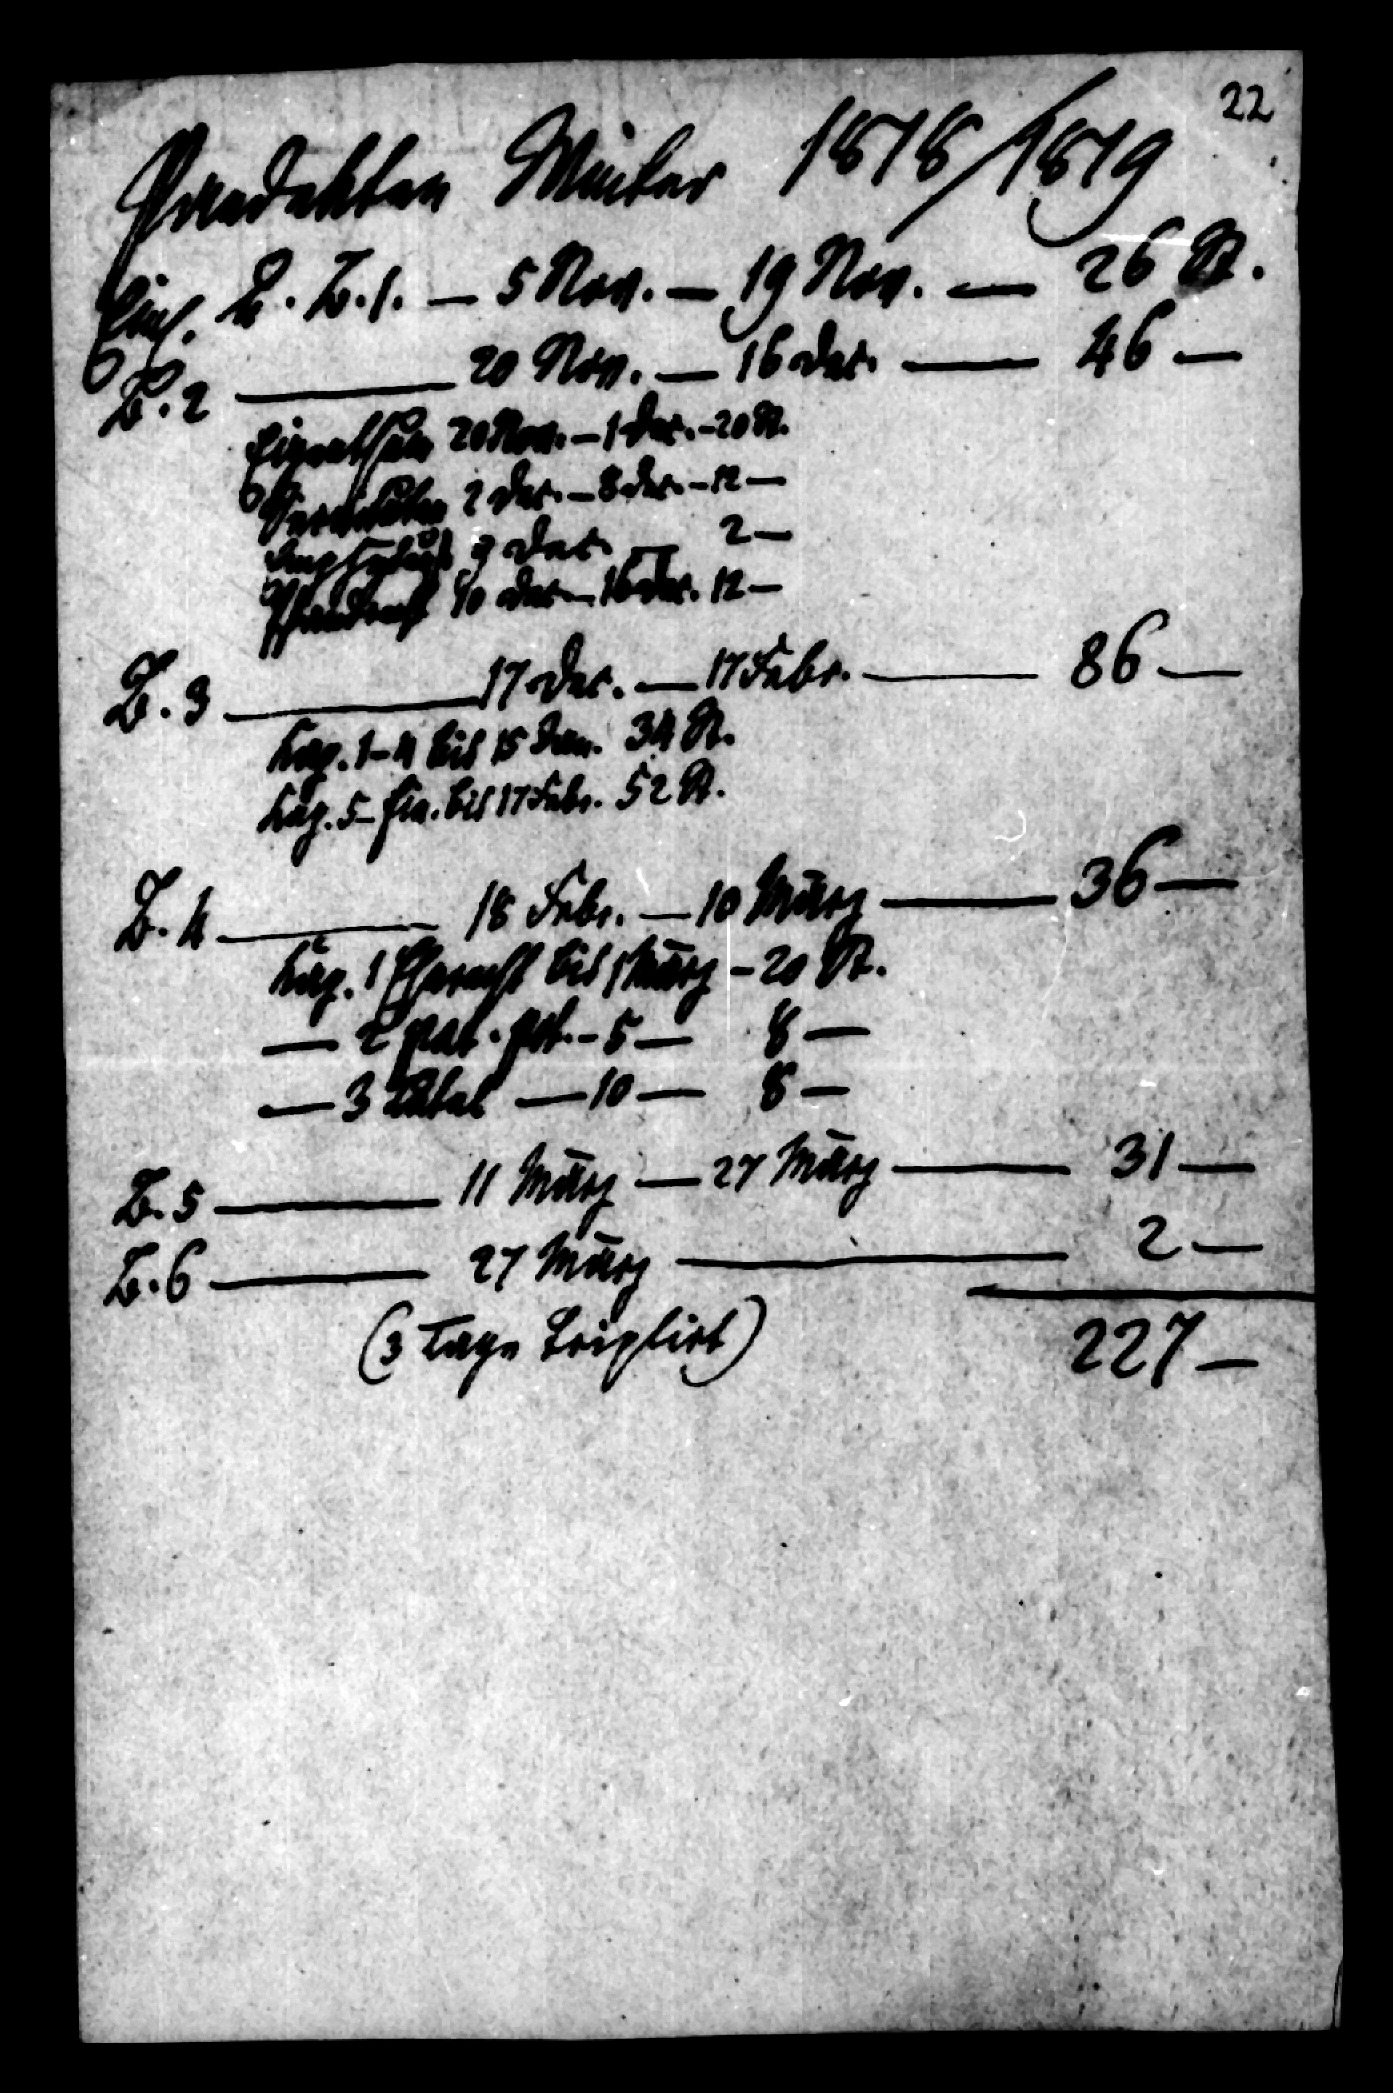 22
Pandekten Winter 1818/1819
Einl. u. B. 1. — 5 Nov. — 19 Nov. — 26 St.
B. 2 — 20 Nov. — 16 Dec. — 46 —
Eigenthum 20 Nov. — 1 Dec. — 20 St.
Servituten 2 Dec. — 8 Dec. — 12 —
9 Dec. — 2 —
Pfandrecht 10 Dec — 16 Dec. 12 —
B. 3 — 17 Dec. — 17 Febr. — 86 —
Kap. 1-4 bis 15 Jan. 34 St.
Kap. 5 - fin. bis 17 Febr. 52 St.
B. 4 — 18 Febr. — 10 März — 36 —
Kap. 1 Eherecht bis 1 März — 20 St.
— 2 pat. pot. — 5 — 8 —
— 3 Tutel — 10 — 8 —
B. 5 — 11 März — 27 März — 31 —
B. 6 — 27 März — 2 —
(3 Tage triplirt) 227 —